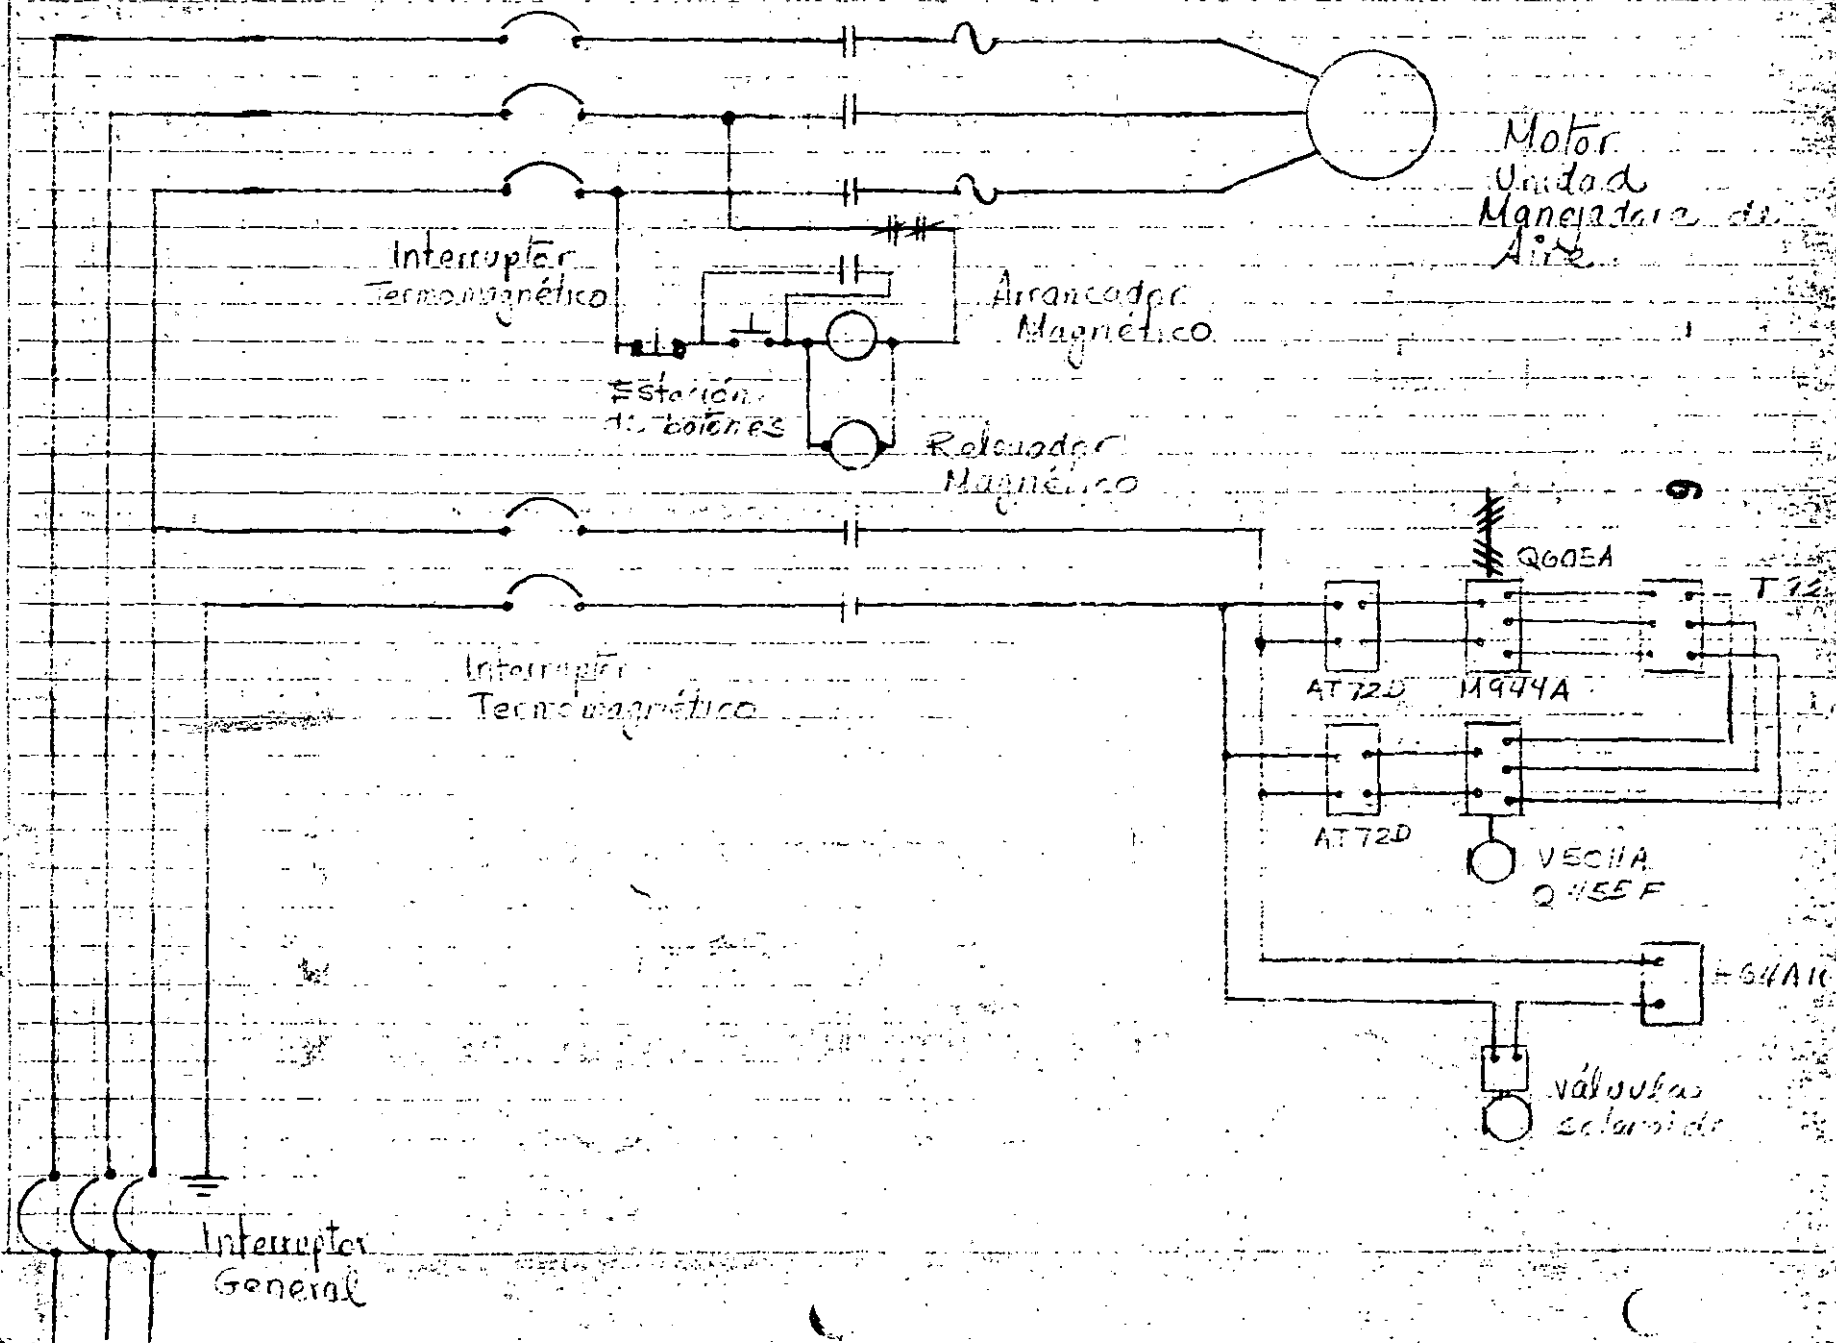 Motor
Unidad
Manejadora de
Aire
Interruptor
Termomagnético
Arrancador
Magnético
Estación
de botones
Relevador
Magnético
Q605A
T72
AT72D
M944A
Interruptor
Termomagnético
AT72D
V5011A
Q455F
válvula
solenoide
Interruptor
General